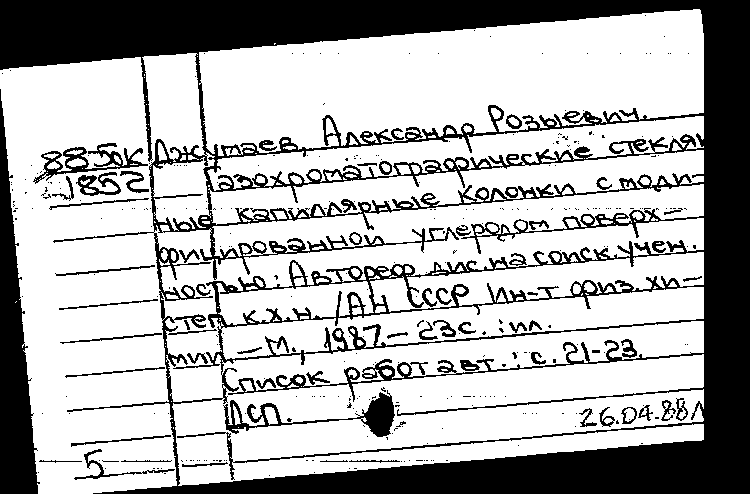 88-50к Джумаев, Александр Розыевич.
1852 Газохроматографические стеклян
ные капиллярные колонки с моди-
фицированной углеродом поверх-
ностью: Автореф. дис. на соиск. учен.
степ. к.х.н. /АН СССР, Ин-т физ. хи-
мии. — М., 1987. — 23с. : ил.
Список работ авт. : с. 21-23.
ДСП.
26.04.88
5